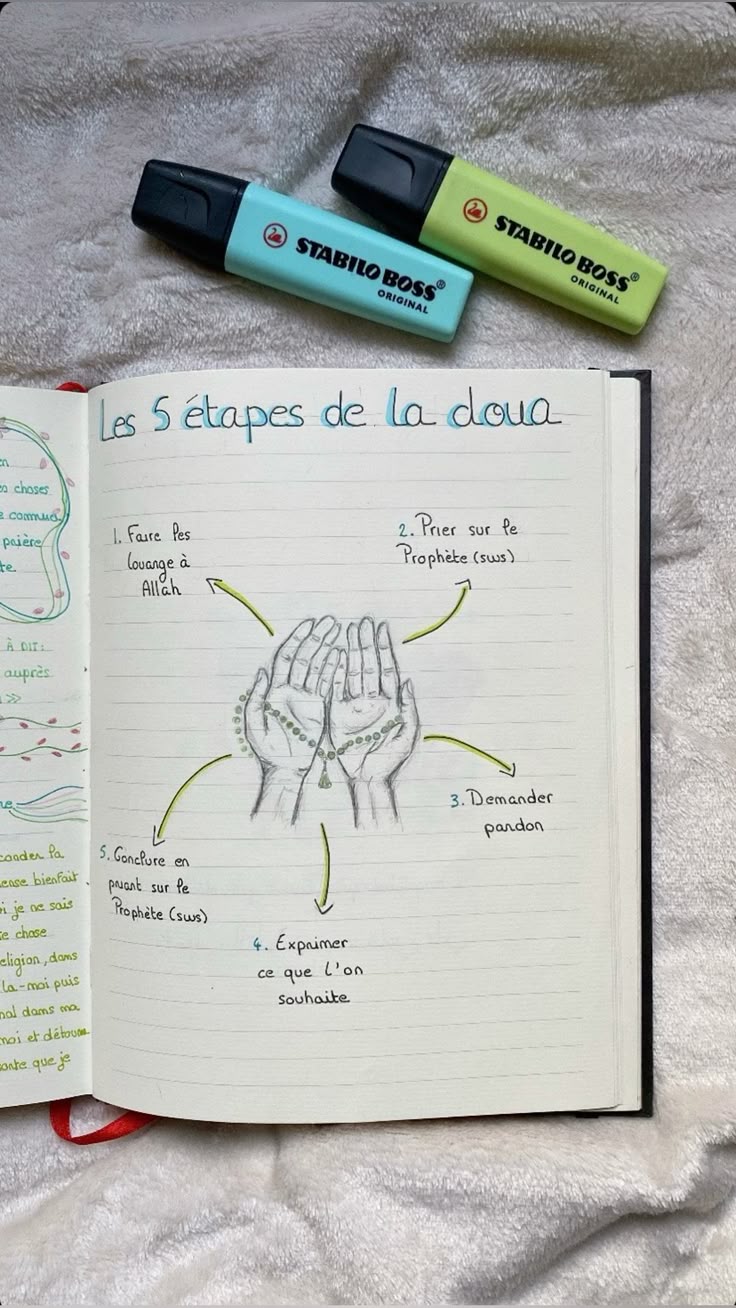 STABILO BOSS®
ORIGINAL
STABILO BOSS®
ORIGINAL
Les 5 étapes de la doua
1. Faire les
louange à
Allah
2. Prier sur le
Prophète (sws)
3. Demander
pardon
4. Exprimer
ce que l'on
souhaite
5. Conclure en
priant sur le
Prophète (sws)
choses
prière
À DIT:
auprès
»
bienfait
je ne sais
chose
dans
la-moi puis
dans ma
moi et
que je